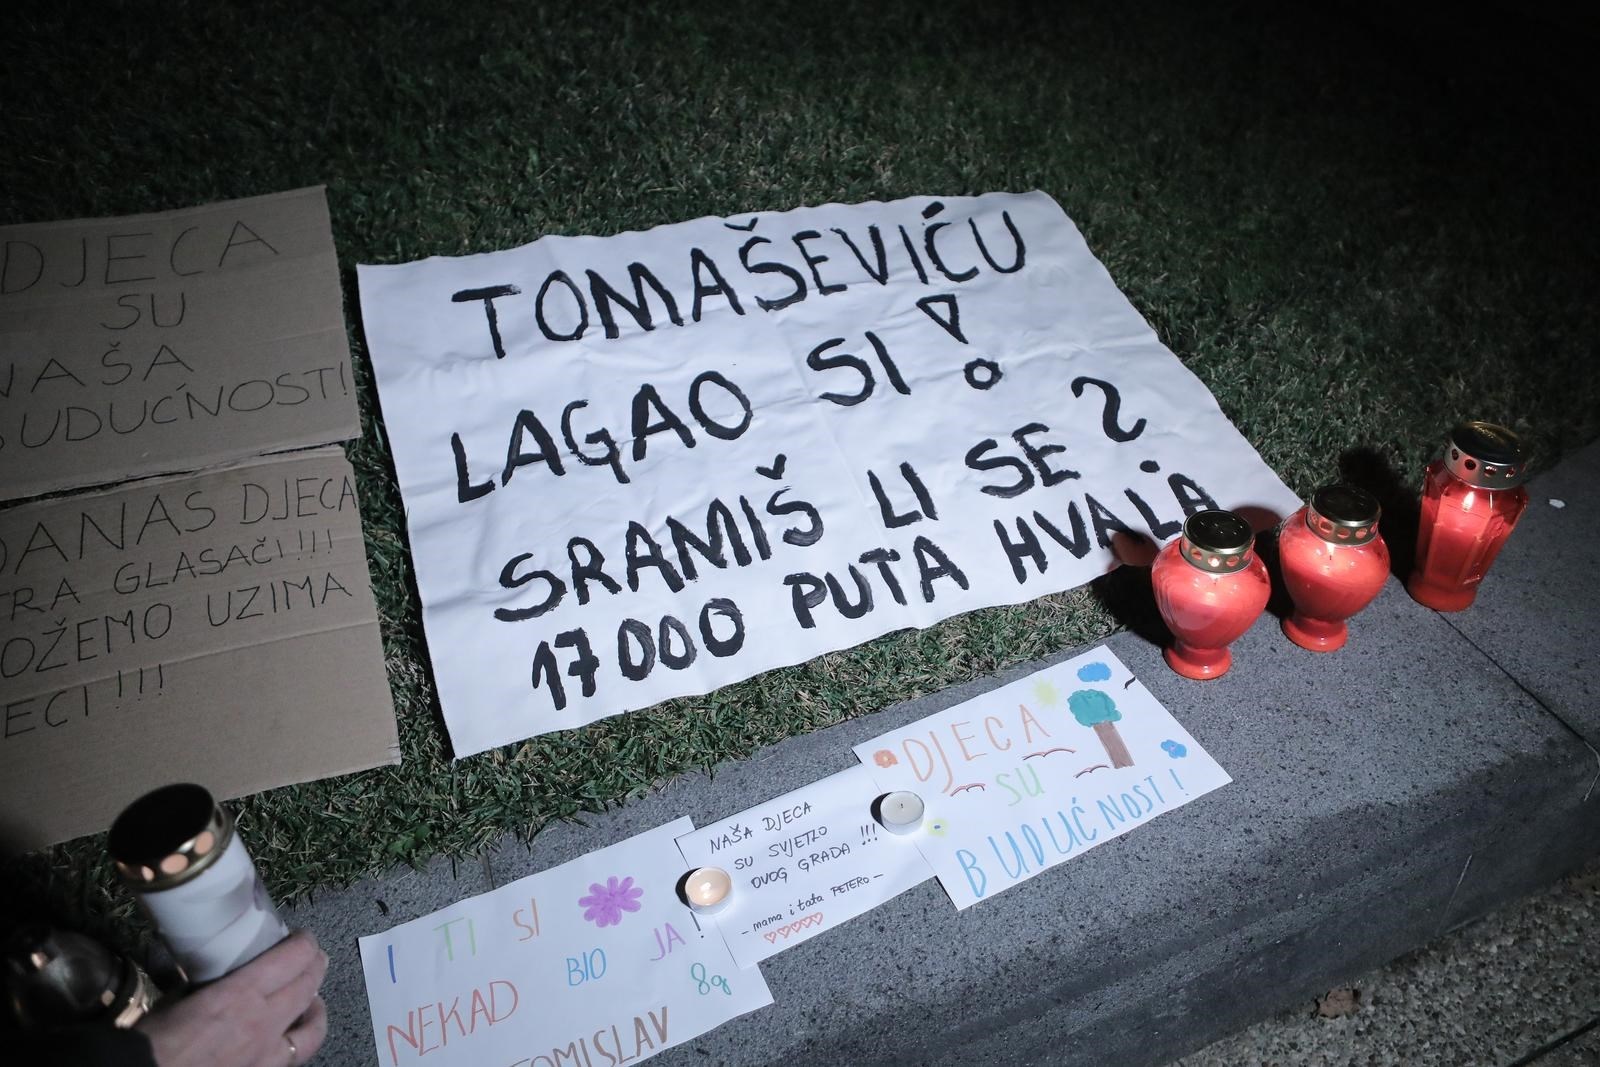 DJECA
SU
NAŠA
BUDUĆNOST!
DANAS DJECA
GLASAČI!!!
UZIMA
TOMAŠEVIĆU
LAGAO SI!
SRAMIŠ LI SE?
17000 PUTA HVALA
I TI SI
NEKAD BIO JA!
TOMISLAV 8g
NAŠA DJECA
SU SVJETLO
OVOG GRADA!!!
- mama i tata PETERO -
DJECA
SU
BUDUĆNOST!